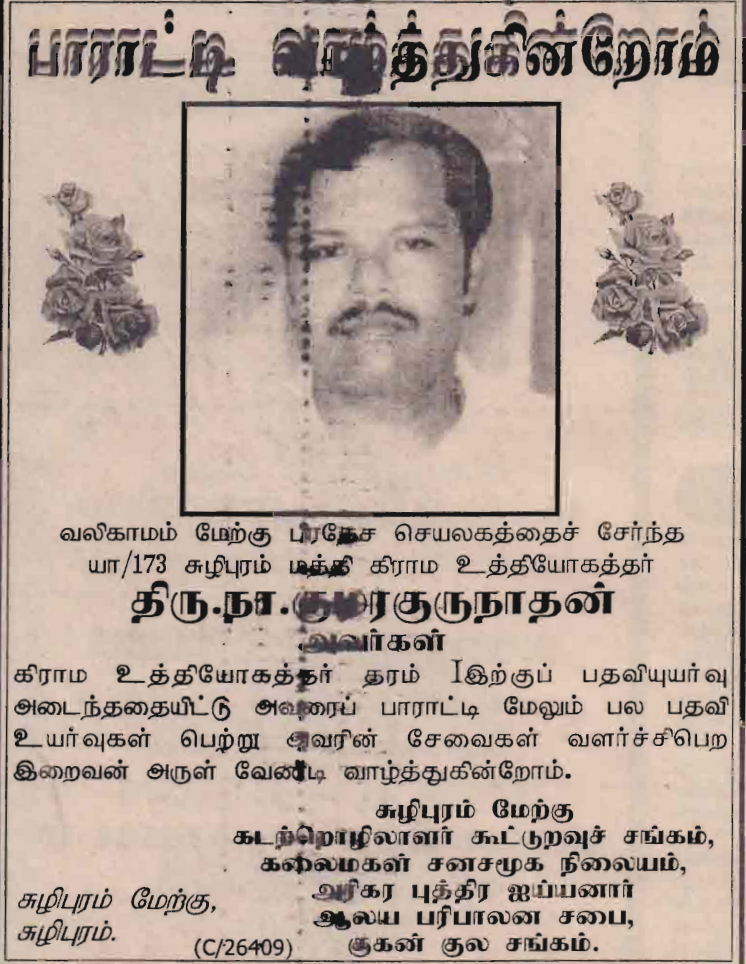 பாராட்டி வாழ்த்துகின்றோம்
வலிகாமம் மேற்கு பிரதேச செயலகத்தைச் சேர்ந்த
யா/173 சுழிபுரம் மத்தி கிராம உத்தியோகத்தர்
திரு.நா.குமரகுருநாதன்
அவர்கள்
கிராம உத்தியோகத்தர் தரம் Iஇற்குப் பதவியுயர்வு
அடைந்ததையிட்டு அவரைப் பாராட்டி மேலும் பல பதவி
உயர்வுகள் பெற்று அவரின் சேவைகள் வளர்ச்சிபெற
இறைவன் அருள் வேண்டி வாழ்த்துகின்றோம்.
சுழிபுரம் மேற்கு
கடற்றொழிலாளர் கூட்டுறவுச் சங்கம்,
கலைமகள் சனசமூக நிலையம்,
அரிகர புத்திர ஐய்யனார்
ஆலய பரிபாலன சபை,
குகன் குல சங்கம்.
சுழிபுரம் மேற்கு,
சுழிபுரம்.
(C/26409)